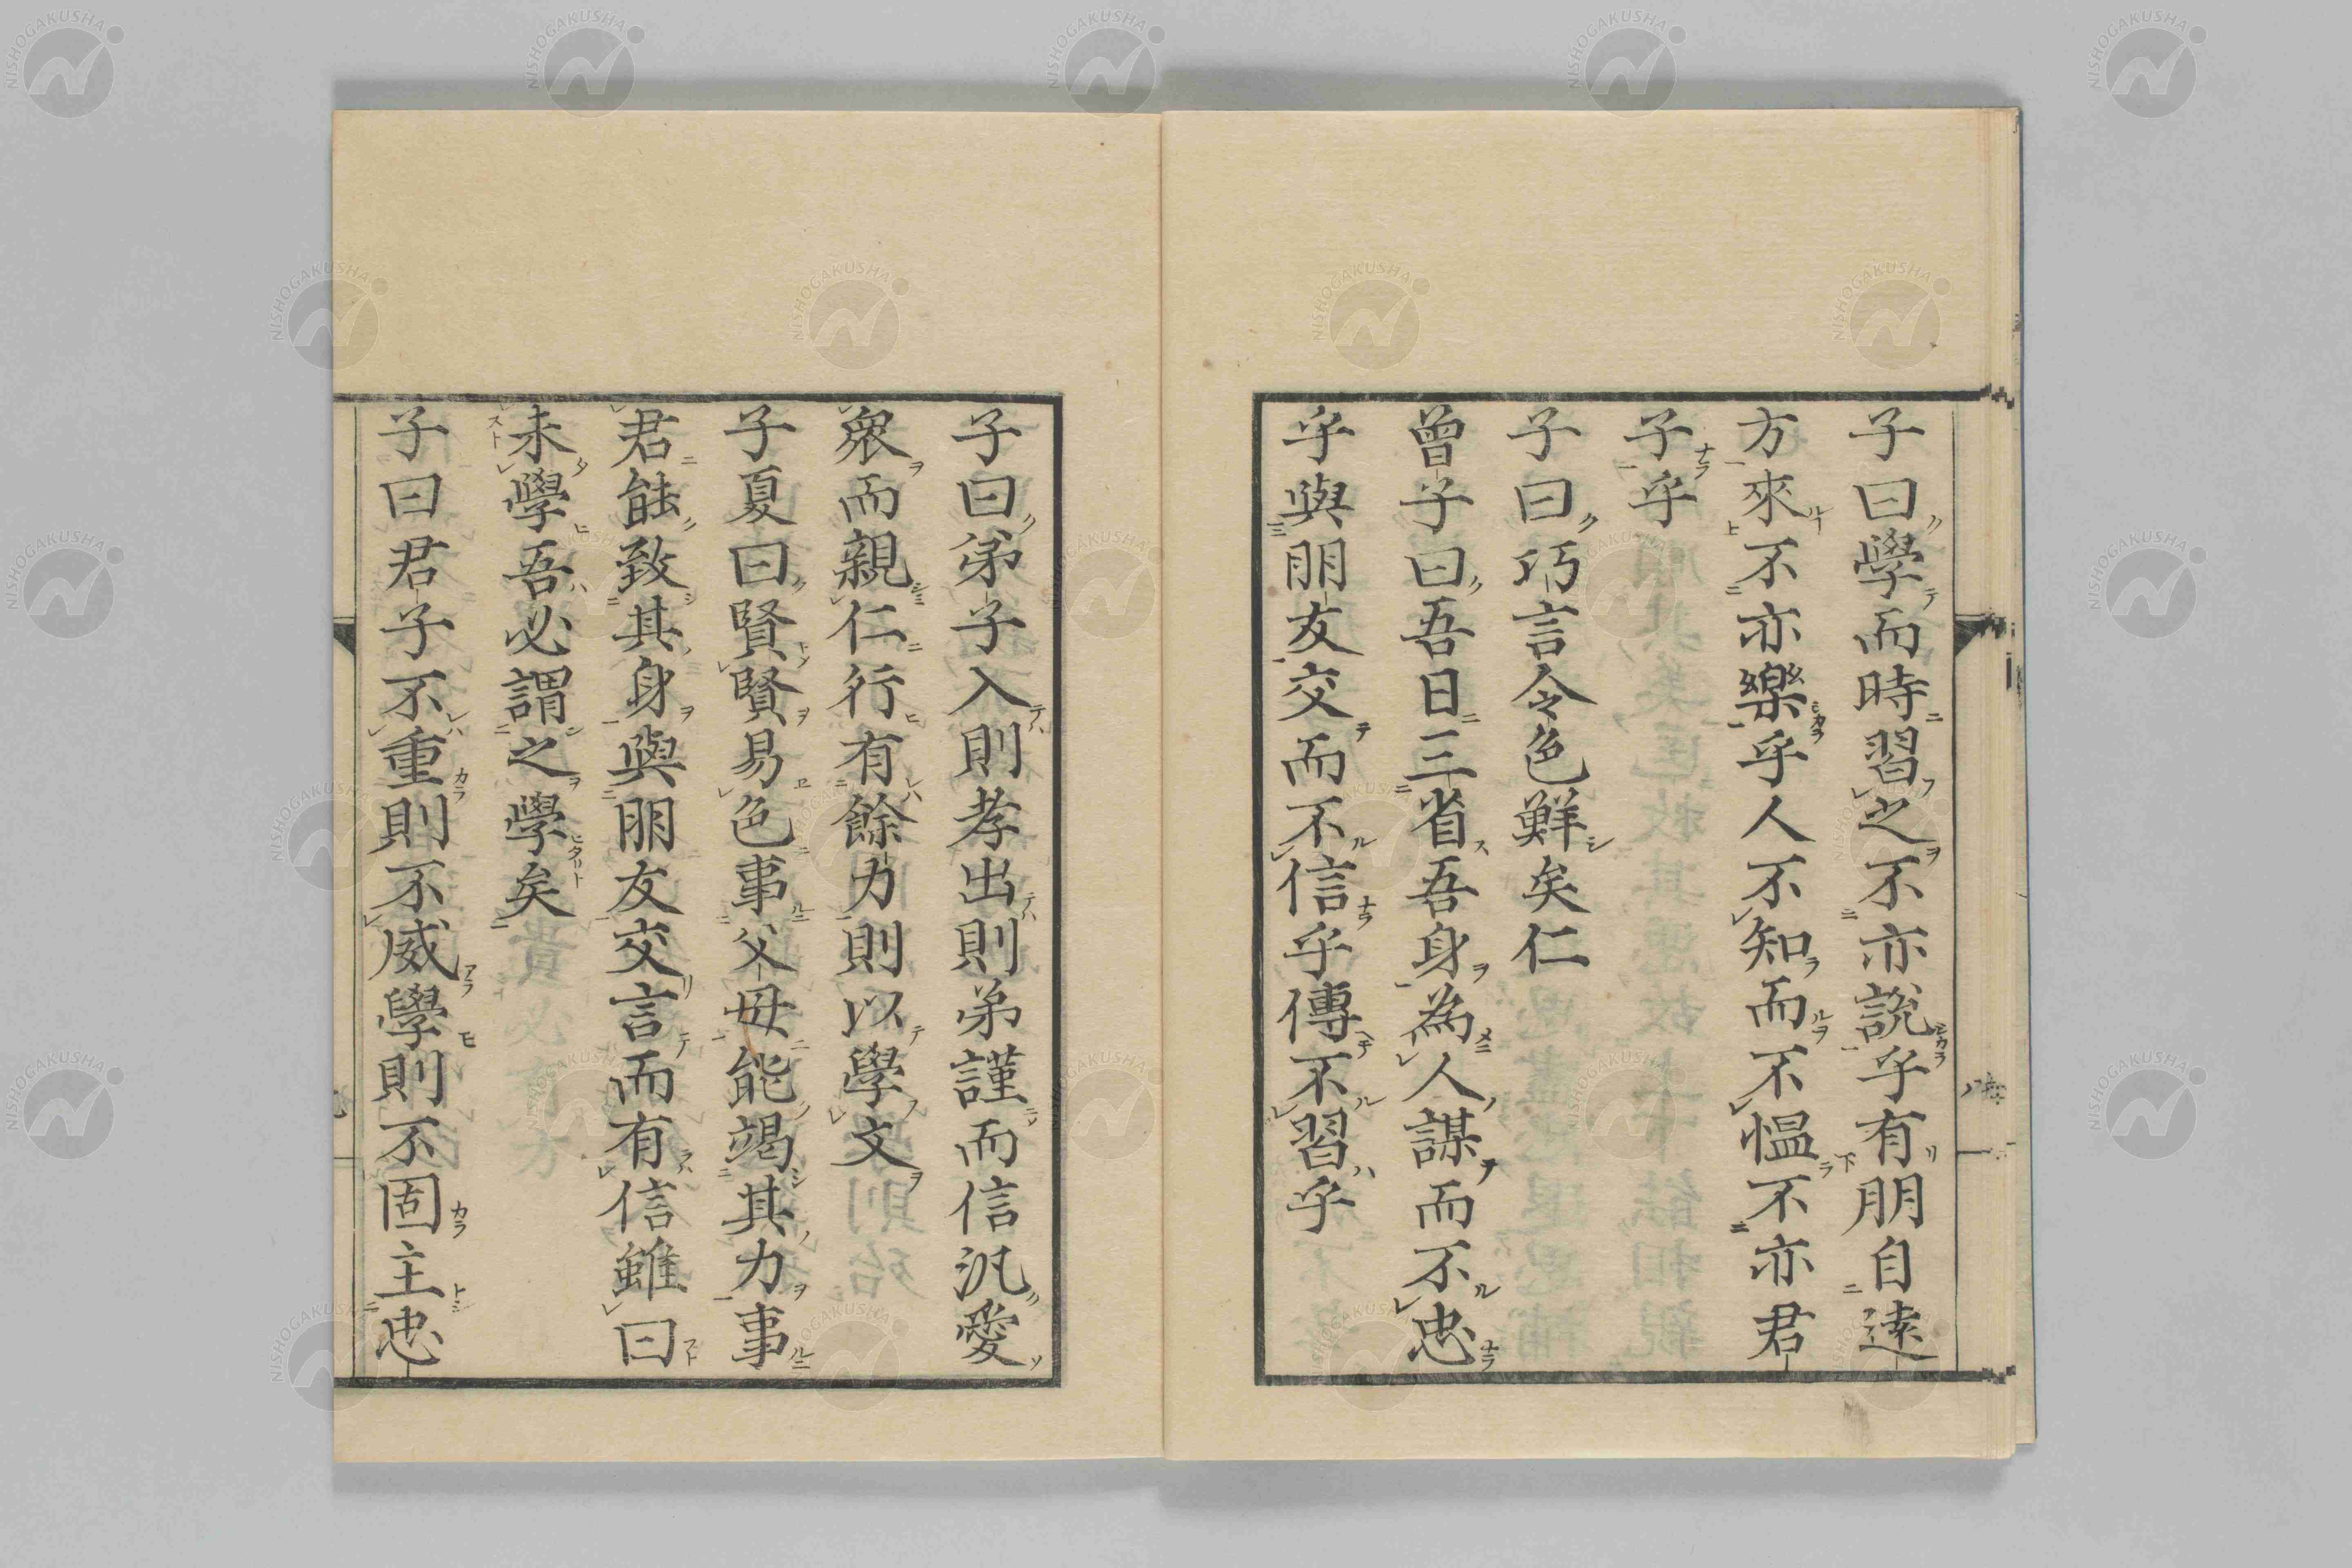 子曰學而時習之不亦說乎有朋自遠
方來不亦樂乎人不知而不慍不亦君
子乎
子曰巧言令色鮮矣仁
曾子曰吾日三省吾身為人謀而不忠
乎與朋友交而不信乎傳不習乎
子曰弟子入則孝出則弟謹而信汎愛
衆而親仁行有餘力則以學文
子夏曰賢賢易色事父母能竭其力事
君能致其身與朋友交言而有信雖曰
未學吾必謂之學矣
子曰君子不重則不威學則不固主忠
NISHOGAKUSHA